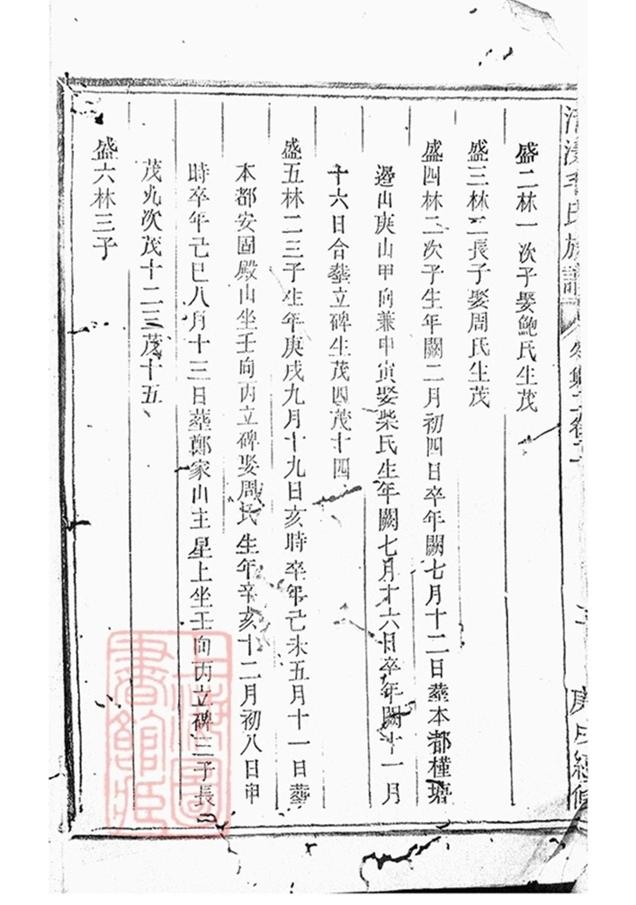 李氏族譜
庚戌經修
盛二林一次子娶鮑氏生茂
盛三林二長子娶周氏生茂
盛四林二次子生年闕二月初四日卒年闕七月十二日葬本都槿塘
邊山庚山甲向兼申寅娶柴氏生年闕七月十六日卒年闕十一月
十六日合葬立碑生茂四茂十四
盛五林二三子生年庚戌九月十九日亥時卒年己未五月十一日葬
本都安固殿山坐壬向丙立碑娶周氏生年辛亥十二月初八日申
時卒年己巳八月十三日葬鄭家山主星上坐壬向丙立碑三子長
茂九次茂十二三茂十五
盛六林三子
書館